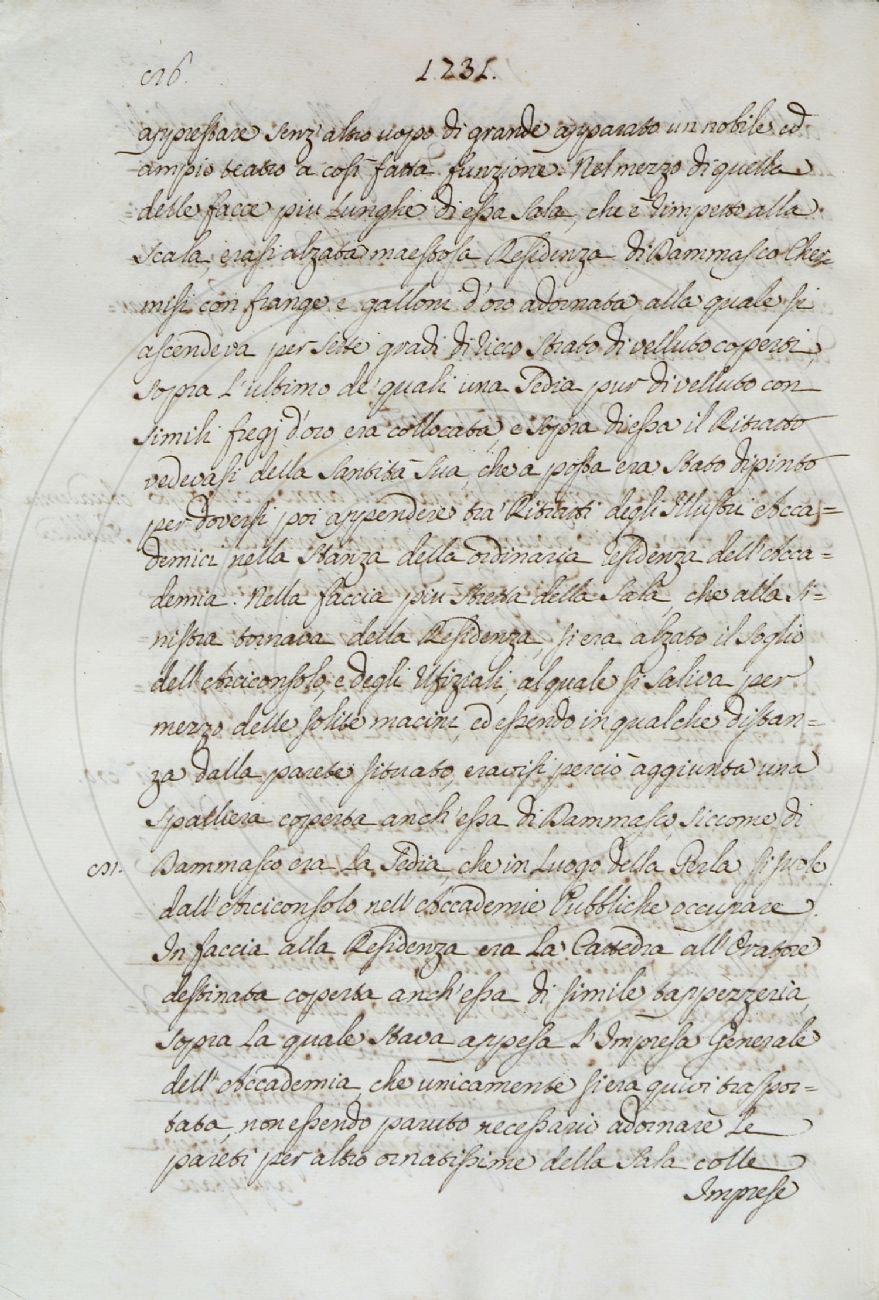 126. 1231.
apprestare senz'altro uopo di grande apparato un nobile ed
ampio teatro a così fatta funzione. Nel mezzo di quella
delle facce più lunghe di essa Sala, che è dimpetto alla
Scala, erasi alzata maestosa Residenza di Dammasco Cher=
misi con frange e galloni d'oro adornata alla quale si
ascendeva per sette gradi di ricco strato di velluto coperti,
sopra l'ultimo de' quali una Sedia pur di velluto con
simili fregj d'oro era collocata, e sopra di essa il Ritratto
vedevasi della Santità Sua, che a posta era stato dipinto
per doversi poi appendere tra' Ritratti degli Illustri Acca=
demici nella Stanza della ordinaria residenza dell'Acca=
demia. Nella faccia più stretta della Sala che alla si=
nistra tornava della Residenza, si era alzato il Soglio
dell'Arciconsolo, e degli Ufiziali, al quale si saliva per
mezzo delle solite macini, ed essendo in qualche distan=
za dalla parete situato, eravisi perciò aggiunta una
spalliera coperta anch'essa di Dammasco, siccome di
Dammasco era la Sedia, che in luogo della Gerla si suole
dall'Arciconsolo nell'Accademie Pubbliche occupare.
In faccia alla Residenza era la Cattedra all'Oratore
destinata coperta anch'essa di simile tappezzeria,
sopra la quale stava appesa l'Impresa Generale
dell'Accademia, che unicamente si era quivi traspor=
tata, non essendo paruto necessario adornare le
pareti per altro ornatissime della Sala colle
Imprese